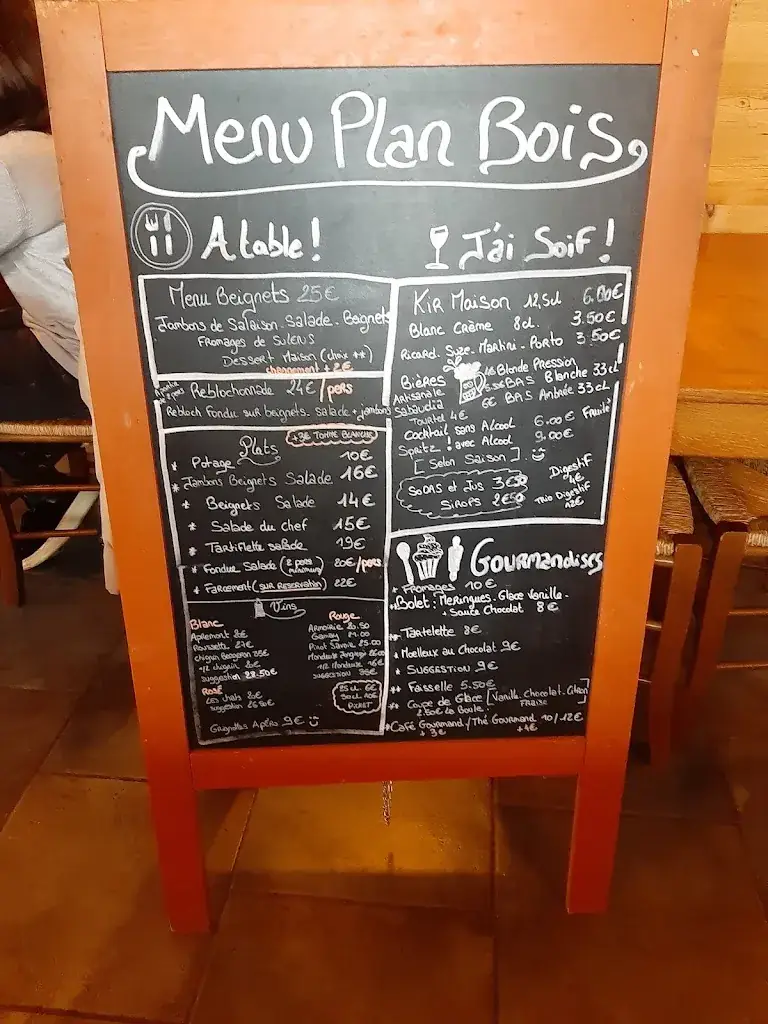 Menu Plan Bois
A table !
Menu Beignets 25€
Jambons de Salaison. Salade. Beignets
Fromages de
Dessert Maison (choix **)
changement + 2€
Reblochonnade 24€/pers
Rebloch fondu sur beignets. Salade + jambons
+3€ TOMME BLANCHE
Plats
* Potage 10€
* Jambons Beignets Salade 16€
* Beignets Salade 14€
* Salade du chef 15€
* Tartiflette salade 19€
* Fondue Salade (2 pers minimum) 20€/pers
* Farcement (SUR RESERVATION) 22€
Vins
Blanc
Apremont
Roussette
suggestion 22.50€
Rosé
suggestion
Rouge
Gamay
Pinot Savoie
Mondeuse
1/2 Mondeuse
SUGGESTION
25 cl. 6€
50 cl. 10€
PICHET
Grignottes Apéro 9€
J'ai Soif !
Kir Maison 12,5cl 6.00€
Blanc Crème 8cl. 3.50€
Ricard. Suze. Martini. Porto 3.50€
Bières
Artisanale
Sabaudia
Blonde Pression
BAS Blanche 33cl
6€ BAS Ambrée 33cl
Tourtel 4€
Cocktail sans Alcool 6.00€ Fruité !
Spritz ! avec Alcool 9.00€
[Selon Saison]
Sodas et Jus 3€50
Sirops 2€50
Digestif
4€
Trio Digestif
12€
Gourmandises
* Fromages 10€
* Bolet : Meringues. Glace Vanille.
Sauce Chocolat 8€
** Tartelette 8€
* Moelleux au Chocolat 9€
* SUGGESTION 9€
** Faisselle 5.50€
** Coupe de Glace [Vanille. Chocolat. Citron
FRAISE]
2.50€ la Boule.
* Café Gourmand / Thé Gourmand 10/12€
+3€ +4€